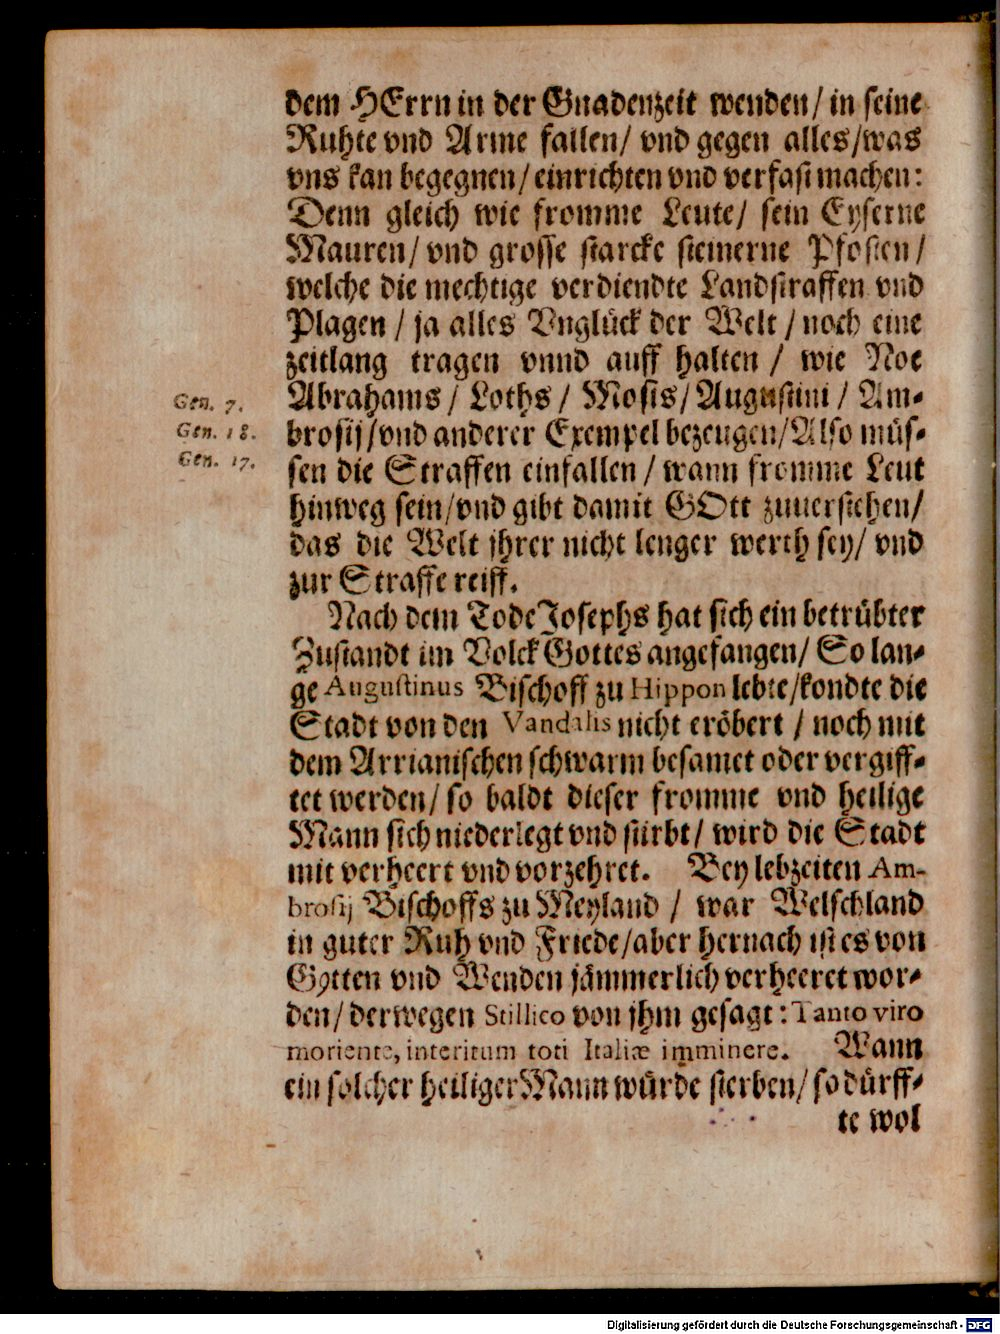 dem HErrn in der Gnadenzeit wenden/ in seine
Ruhte vnd Arme fallen/ vnd gegen alles/was
vns kan begegnen/ einrichten vnd verfast machen:
Denn gleich wie fromme Leute/ sein Eyserne
Mauren/ vnd grosse starcke steinerne Pfosten/
welche die mechtige verdiendte Landstraffen vnd
Plagen / ja alles Vnglück der Welt / noch eine
zeitlang tragen vnnd auff halten / wie Noe
Abrahams / Loths / Mosis/ Augustini / Am-
Gen. 7.
brosij/vnd anderer Exempel bezeugen/Also müs-
Gen. 18.
sen die Straffen einfallen / wann fromme Leut
Gen. 17.
hinweg sein/vnd gibt damit GOtt zuuerstehen/
das die Welt jhrer nicht lenger werth sey/ vnd
zur Straffe reiff.
Nach dem Tode Josephs hat sich ein betrübter
Zustandt im Volck Gottes angefangen/ So lan-
ge Augustinus Bischoff zu Hippon lebte/kondte die
Stadt von den Vandalis nicht eröbert / noch mit
dem Arrianischen schwarm besamet oder vergiff-
tet werden/ so baldt dieser fromme vnd heilige
Mann sich niederlegt vnd stirbt/ wird die Stadt
mit verheert vnd vorzehret. Bey lebzeiten Am-
brosij Bischoffs zu Meyland / war Welschland
in guter Ruh vnd Friede/aber hernach ist es von
Gotten vnd Wenden jämmerlich verheeret wor-
den/ derwegen Stillico von jhm gesagt: Tanto viro
moriente, interitum toti Italiæ imminere. Wann
ein solcher heiliger Mann würde sterben/ so dürff-
te wol
Digitalisierung gefördert durch die Deutsche Forschungsgemeinschaft - DFG